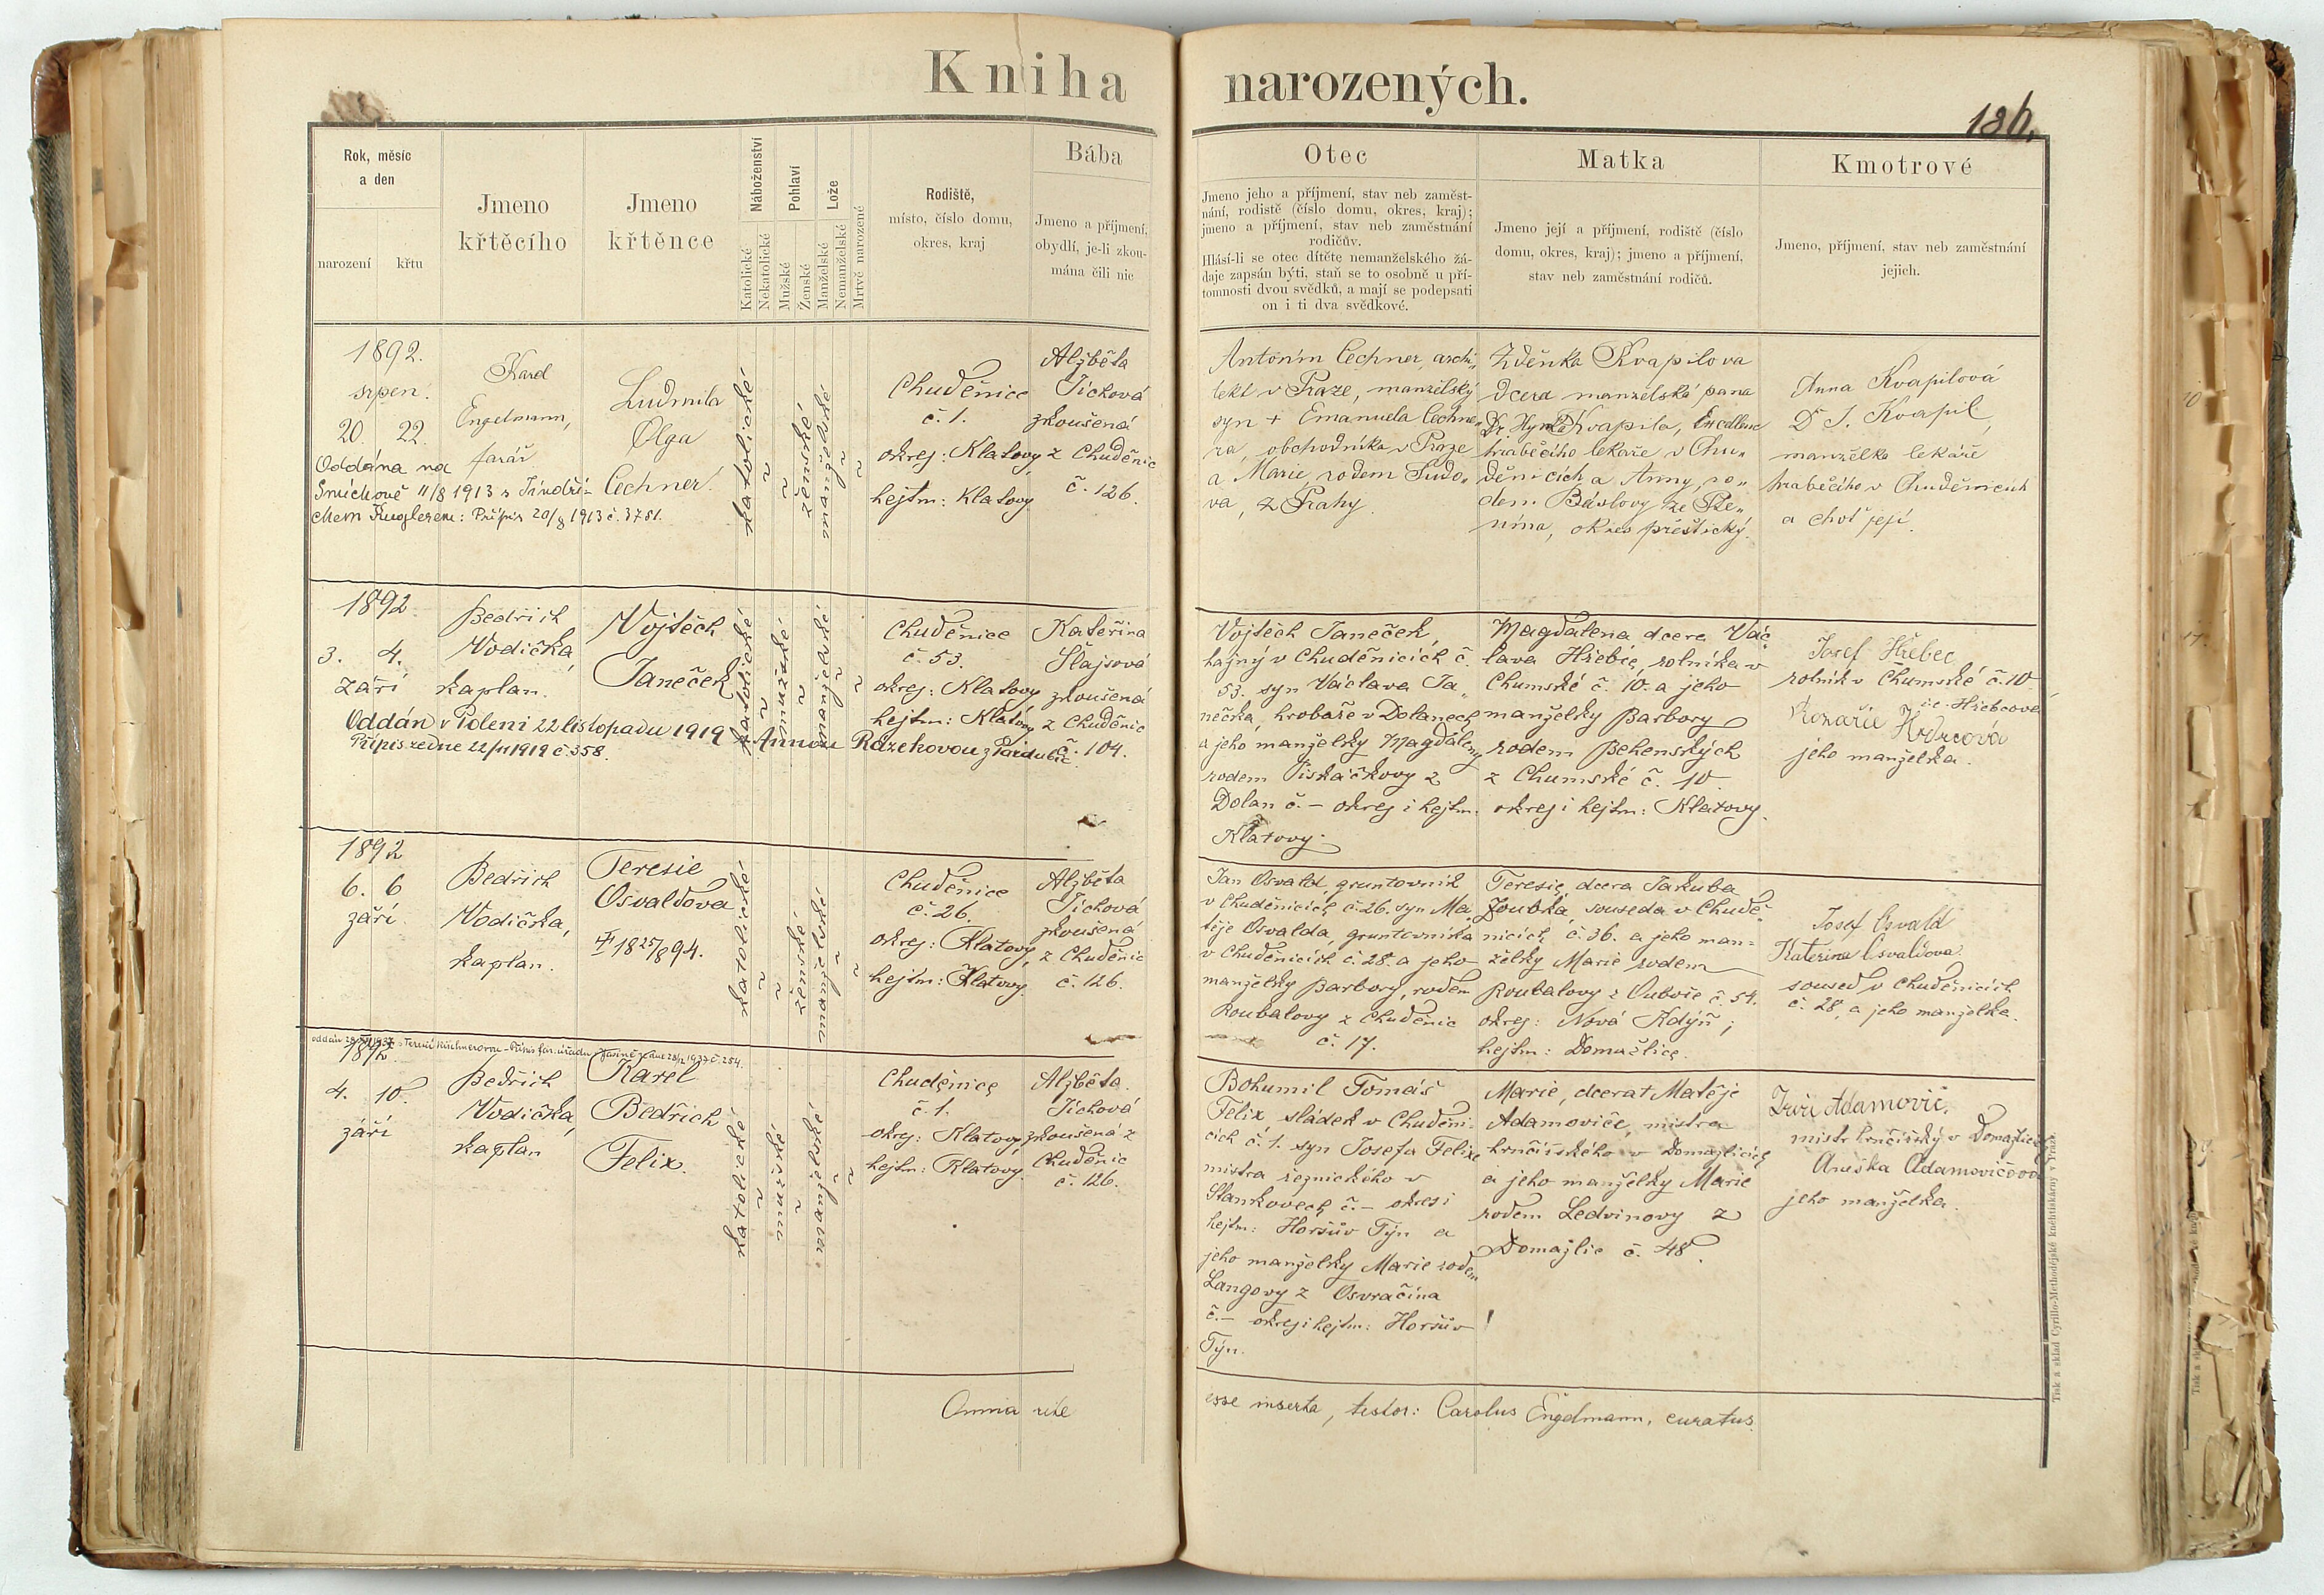 Kniha narozených.
136.
Rok, měsíc
a den
narození
křtu
Jmeno
křtěcího
Jmeno
křtěnce
Náboženství
Katolické
Nekatolické
Pohlaví
Mužské
Ženské
Lože
Manželské
Nemanželské
Mrtvě narozené
Rodiště,
místo, číslo domu,
okres, kraj
Bába
Jmeno a příjmení,
obydlí, je-li zkou-
mána čili nic
Otec
Jmeno jeho a příjmení, stav neb zaměst-
nání, rodiště (číslo domu, okres, kraj);
jmeno a příjmení, stav neb zaměstnání
rodičův.
Hlásí-li se otec dítěte nemanželského žá-
daje zapsán býti, staň se to osobně u pří-
tomnosti dvou svědků, a mají se podepsati
on i ti dva svědkové.
Matka
Jmeno její a příjmení, rodiště (číslo
domu, okres, kraj); jmeno a příjmení,
stav neb zaměstnání rodičů.
Kmotrové
Jmeno, příjmení, stav neb zaměstnání
jejich.
1892.
srpen.
20. 22.
Oddána na
Smíchově 11/8 1913 s Jindři-
chem Kuglerem: Přípis 20/8 1913 č. 3781.
Karel
Engelmann,
farář
Ludmila
Olga
Cechner.
katolické
ženské
manželské
Chuděnice
č. 1.
okres: Klatovy
hejtm: Klatovy
Alžběta
Tichová
zkoušená
z Chuděnic
č. 126.
Antonín Cechner, archi„
tekt v Praze, manželský
syn + Emanuela Cechne„
ra, obchodníka v Praze
a Marie, rodem Sudo„
va, z Prahy.
Zděnka Kvapilova
dcera manželská pana
Dr. Hynka Kvapila, Excellenc
hraběcího lékaře v Chu„
děnicích a Anny, ro„
dem Baslovy ze Pře„
nína, okres přeštický.
Anna Kvapilová
Dr J. Kvapil,
manželka lékaře
hraběcího v Chuděnicích
a choť její.
1892
3. 4.
září
Bedřich
Vodička,
kaplan.
Vojtěch
Janeček
Oddán v Poleni 22 listopadu 1919 s Annou Rázekovou z Pardubic
Přípis ze dne 22/11 1919 č. 358.
katolické
mužské
manželské
Chuděnice
č. 53.
okres: Klatovy
hejtm: Klatovy
Kateřina
Šlajsová
zkoušená
z Chuděnic
č. 104.
Vojtěch Janeček,
hajný v Chuděnicích č.
53. syn Václava Ja„
nečka, hrobaře v Dolanech
a jeho manželky Magdaleny
rodem Piskáčkovy z
Dolan č. – okres i hejtm.
Klatovy.
Magdalena dcera Vác„
lava Hřebce, rolníka v
Chumské č. 10. a jeho
manželky Barbory
rodem Behenských
z Chumské č. 10.
okres i hejtm: Klatovy.
Josef Hřebec
rolník v Chumské č. 10.
Hřebcova
Rozarie
jeho manželka.
1892
6. 6
září
Bedřich
Vodička,
kaplan.
Teresie
Osvaldova
† 18 25/8 94.
katolické
ženské
manželské
Chuděnice
č. 26.
okres: Klatovy,
hejtm: Klatovy.
Alžběta
Tichová
zkoušená
z Chuděnic
č. 126.
Jan Osvald, gruntovník
v Chuděnicích č. 26. syn Ma„
těje Osvalda gruntovníka
v Chuděnicích č. 28. a jeho
manželky Barbory, rodem
Roubalovy z Chuděnic
č. 17.
Teresie, dcera Jakuba
Joubka, souseda v Chudě-
nicích, č. 36. a jeho man-
želky Marie rodem
Roubalovy z Úuboče č. 54.
okres: Nová Kdýň;
hejtm: Domažlice.
Josef Osvald
Kateřina Osvaldova.
soused v Chuděnicích
č. 28, a jeho manželka.
1892
4. 10.
září
Bedřich
Vodička,
kaplan
Karel
Bedřich
Felix.
katolické
mužské
manželské
Chuděnice
č. 1.
okres: Klatovy
hejtm: Klatovy.
Alžběta
Tichová
zkoušená z
Chuděnic
č. 126.
Bohumil Tomáš
Felix sládek v Chuděni-
cích č. 1. syn Josefa Felixe
mistra řeznického v
Stankovech č. – okres i
hejtm: Horšův Týn a
jeho manželky Marie rodem
Langovy z Osvračína
č. – okres i hejtm: Horšův
Týn.
Marie, dcera Matěje
Adamoviče, mistra
hrnčířského v Domažlicích
a jeho manželky Marie
rodem Ledvinovy z
Domažlic č. 48.
Jiří Adamovič,
mistr hrnčířský v Domažlicích
Aneška Adamovičová
jeho manželka.
Omnia rite esse inserta, testor: Carolus Engelmann, curatus.
Tisk a sklad Cyrillo-Methodějské knihtiskárny v Praze.